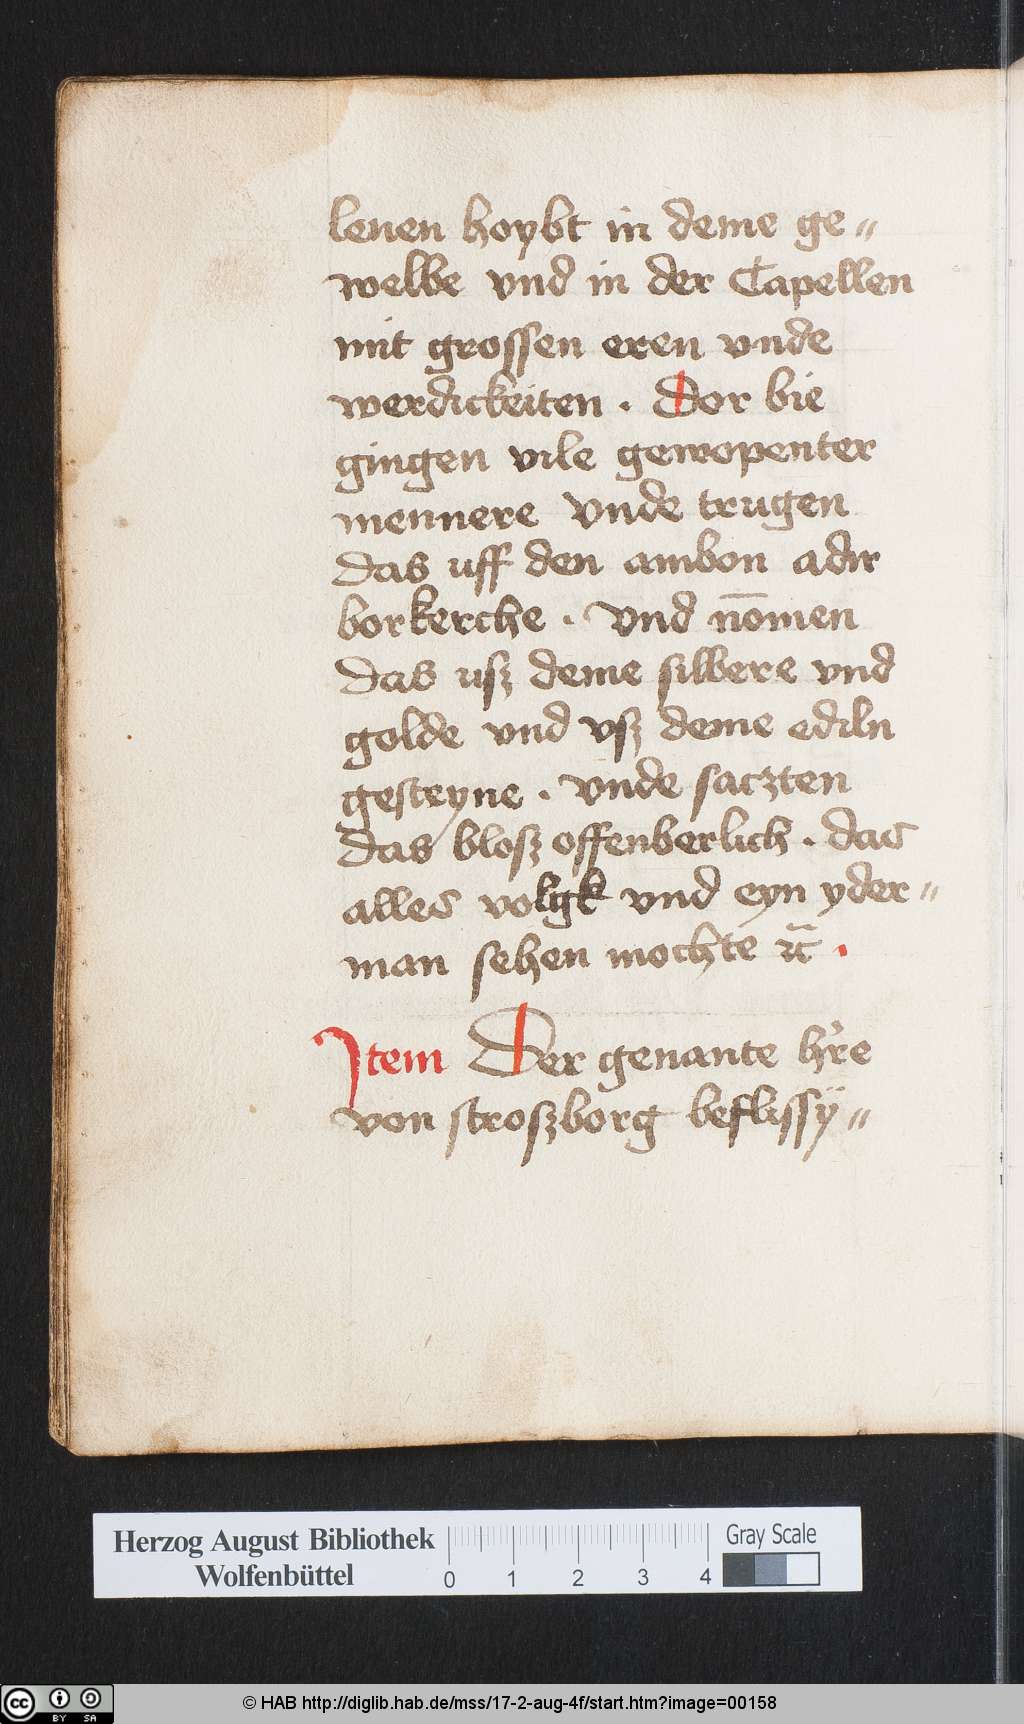 lenen hoybt in deme ge〃
welbe vnd in der Capellen
mit grossen eren vnde
werdickeiten . Dor bie
gingen vile gewopenter
mennere vnde trugen
das uff den ambon adir
borkerche . vnd nōmen
das usz deme silbere vnd
golde vnd vsz deme ediln
gesteyne . vnde saczten
das blosz offenberlich . das
alles volgk vnd eyn yder〃
man sehen mochte ꝛc̃ .
Item Der genante h're
von stroszborg beflissÿ〃
Herzog August Bibliothek
Wolfenbüttel
0 1 2 3 4
Gray Scale
cc BY SA
© HAB http://diglib.hab.de/mss/17-2-aug-4f/start.htm?image=00158